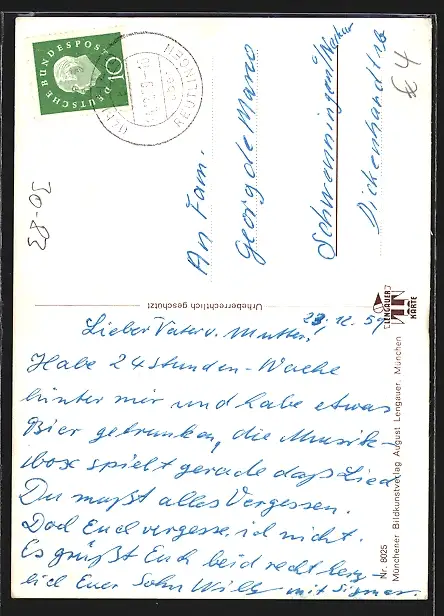 DEUTSCHE BUNDESPOST
10
REUTLINGEN
An Fam.
Georg de Mario
Schwenningen/Neckar
Dickenhardtstr
€ 4
30-83
Urheberrechtlich geschützt!
LENGAUER
KARTE
23.12.59
Lieber Vater u. Mutter!
Habe 24 Stunden-Wache
hinter mir und habe etwas
Bier getrunken, die Musik-
box spielt gerade daß Lied
Du mußt alles Vergessen.
Doch Euch vergesse ich nicht.
Es grüßt Euch beid recht herz-
lich Euer Sohn Willy mit
Nr. 8025
Münchener Bildkunstverlag August Lengauer, München